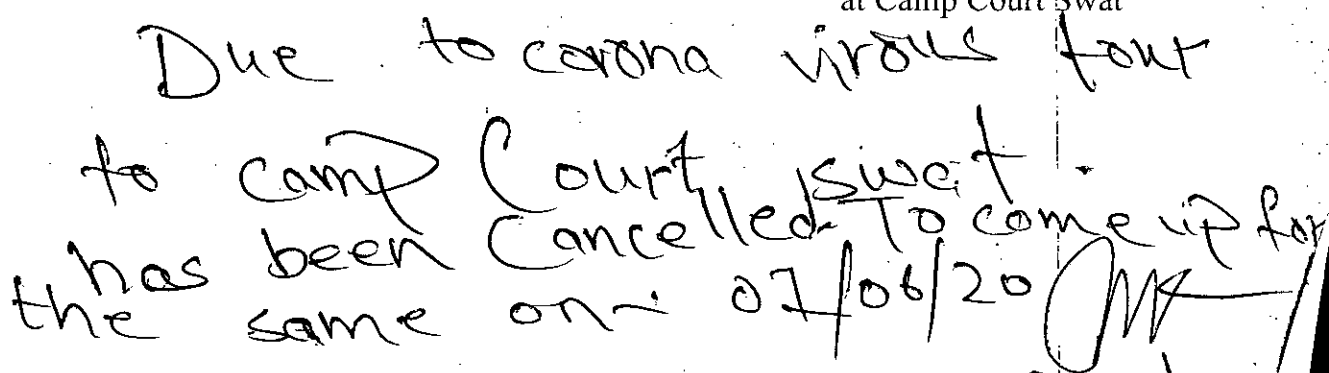 at Camp Court Swat
Due to corona virous tour
to camp Court swat.
has been Cancelled. To come up for
the same on 01/06/20